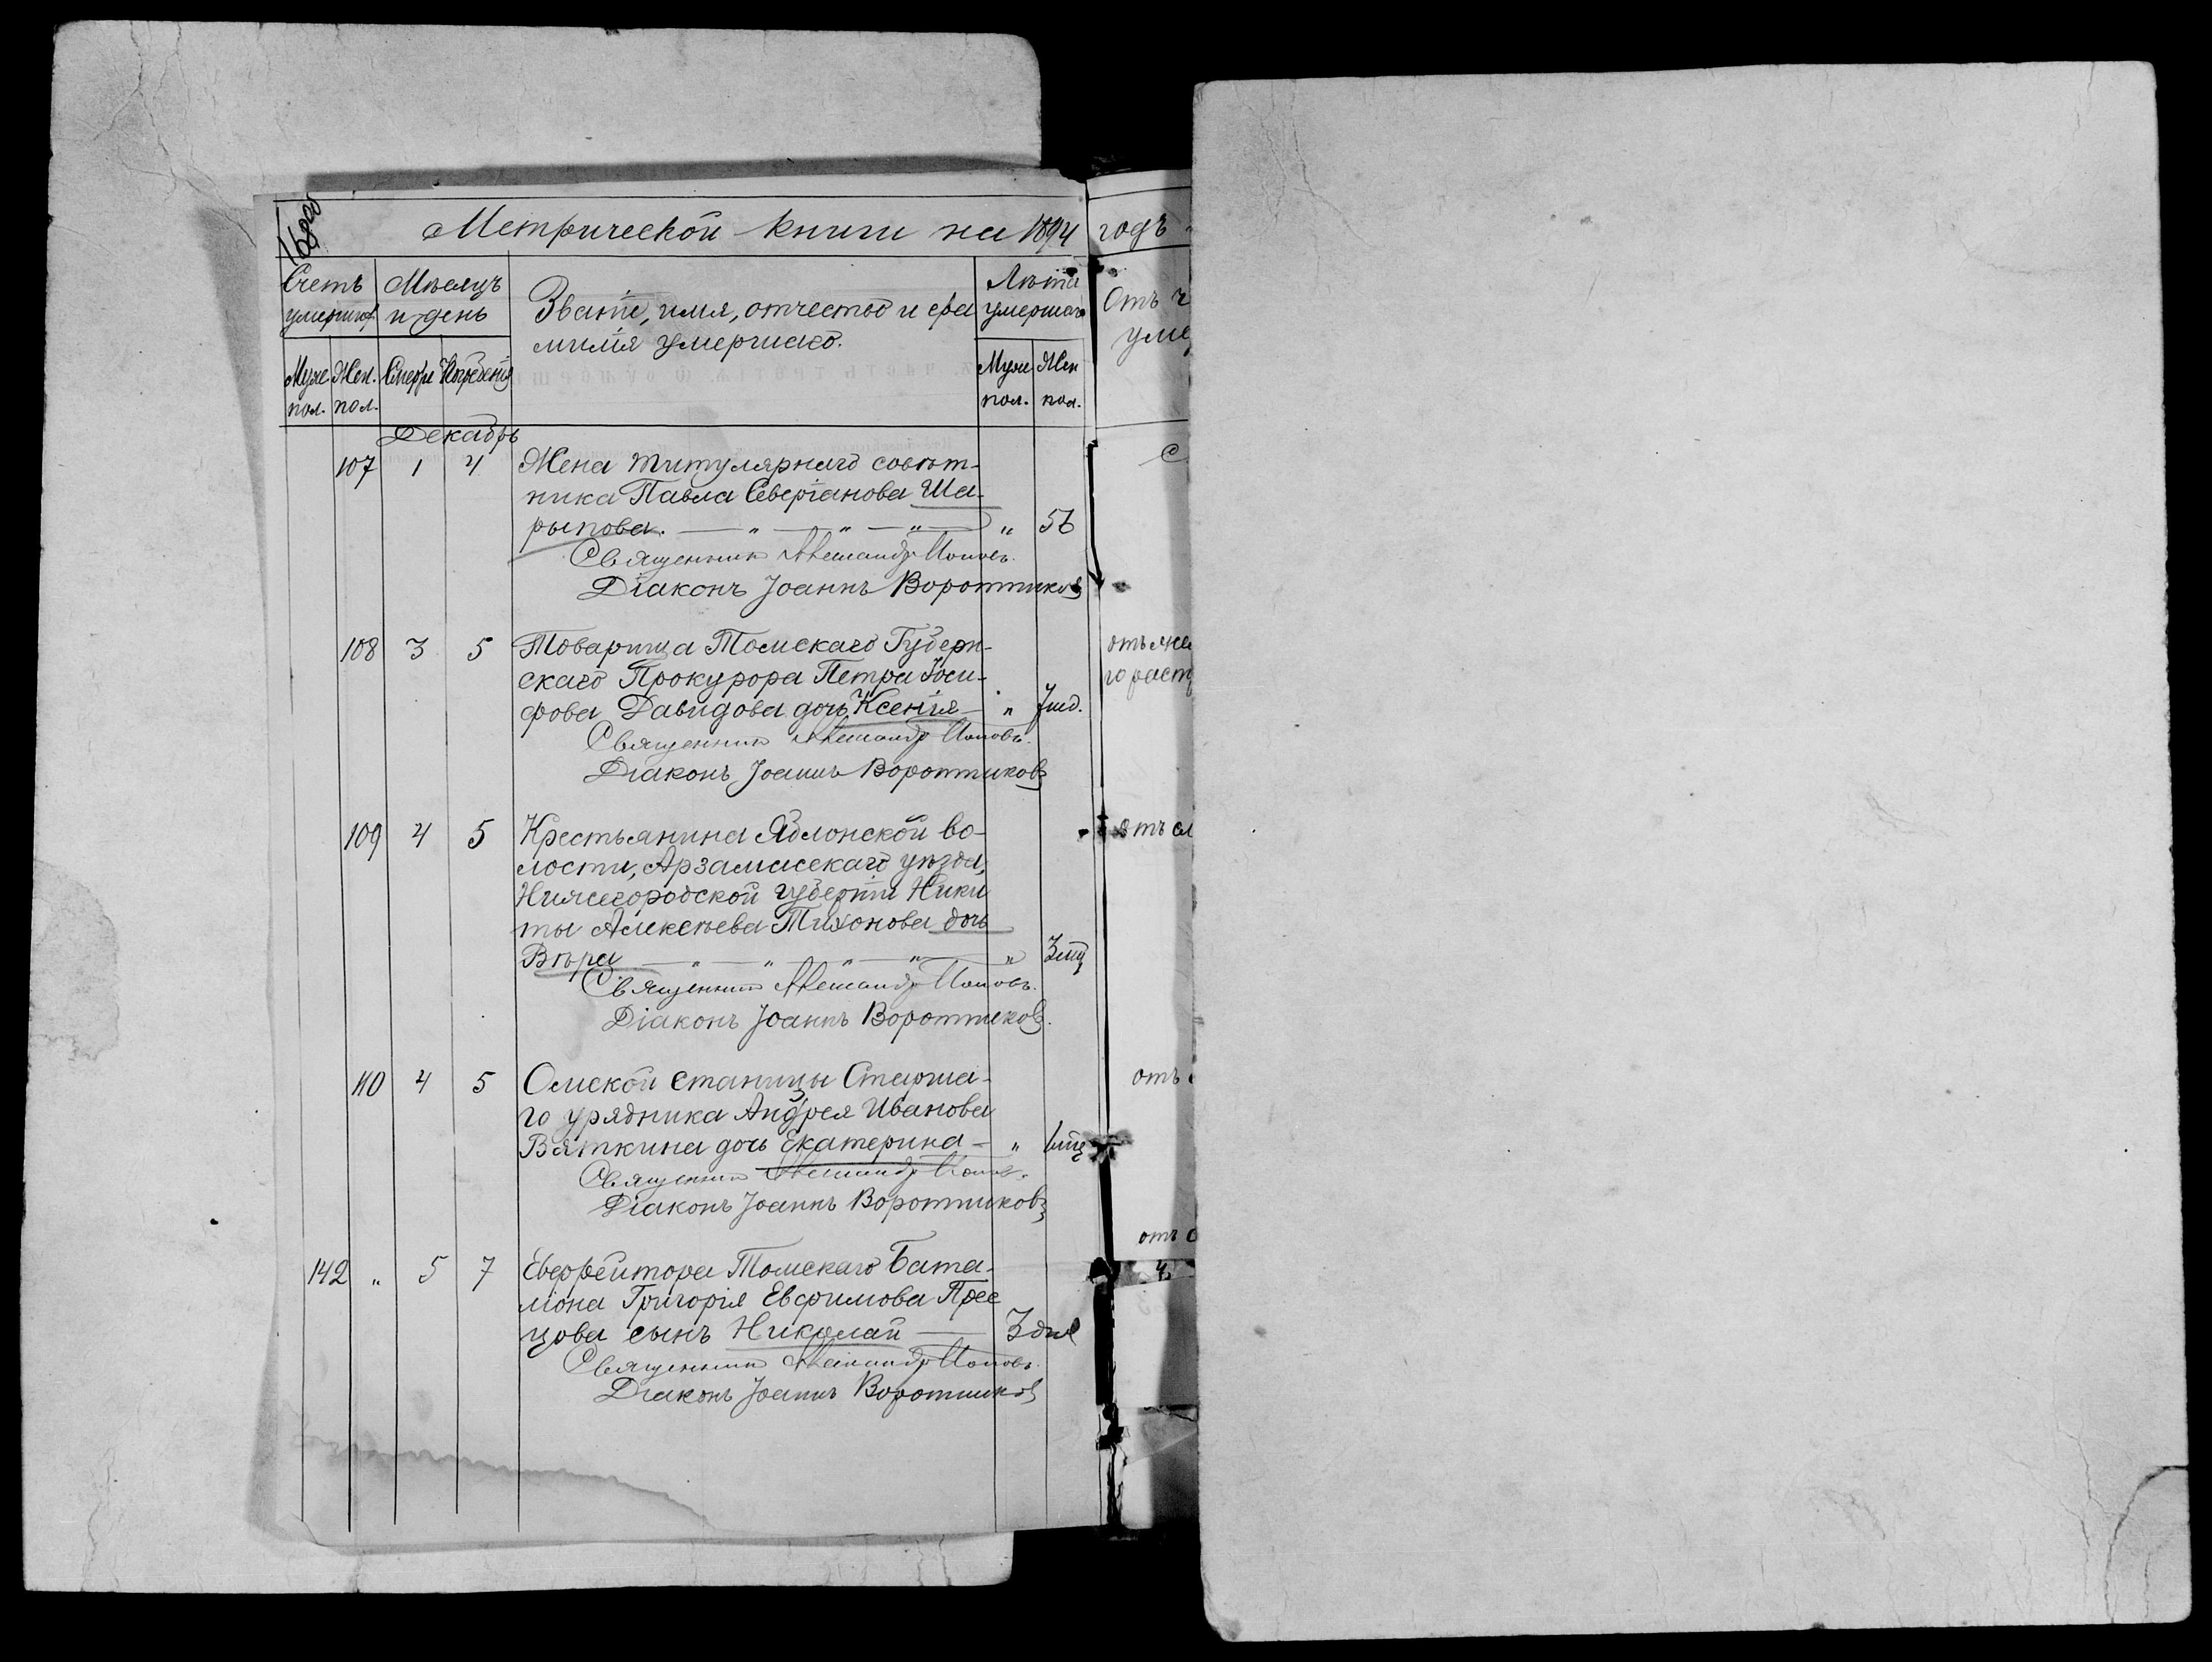 Метрической книги на 1894 годъ
Счетъ умерших
Мѣсяцъ и день
Званіе, имя, отчество и фа
милія умершаго.
Лѣта умершаго
Отъ ч
уме
Муж. пол.
Жен. пол.
Смерти
Погребенія
Муж пол.
Жен пол.
Декабрь
107 1 4 Жена титулярнаго совѣт-
ника Павла Северіанова Ша-
рыпова. — „ — „ — „ — „ 56
Священникъ Александръ Поповъ.
Діаконъ Іоаннъ Воротниковъ
108 3 5 Товарища Томскаго Губерн-
скаго Прокурора Петра Іоси-
фова Давидова дочь Ксенія — „ 7 мѣс.
Священникъ Александръ Поповъ.
Діаконъ Іоаннъ Воротниковъ
109 4 5 Крестьянина Яблонской во-
лости, Арзамасскаго уѣзда,
Нижегородской губерніи Ники
ты Алексѣева Тихонова дочь
Вѣра — „ — „ — „ — „ — „ 3 мѣ
Священникъ Александръ Поповъ.
Діаконъ Іоаннъ Воротниковъ.
110 4 5 Омской станицы Старша-
го урядника Андрея Иванова
Вяткина дочь Екатерина — „
Священникъ Александръ Поповъ.
Діаконъ Іоаннъ Воротниковъ
142 „ 5 7 Ефрейтора Томскаго Бата-
ліона Григорія Евфимова
сынъ Николай — 3 дня
Священникъ Александръ Поповъ.
Діаконъ Іоаннъ Воротниковъ